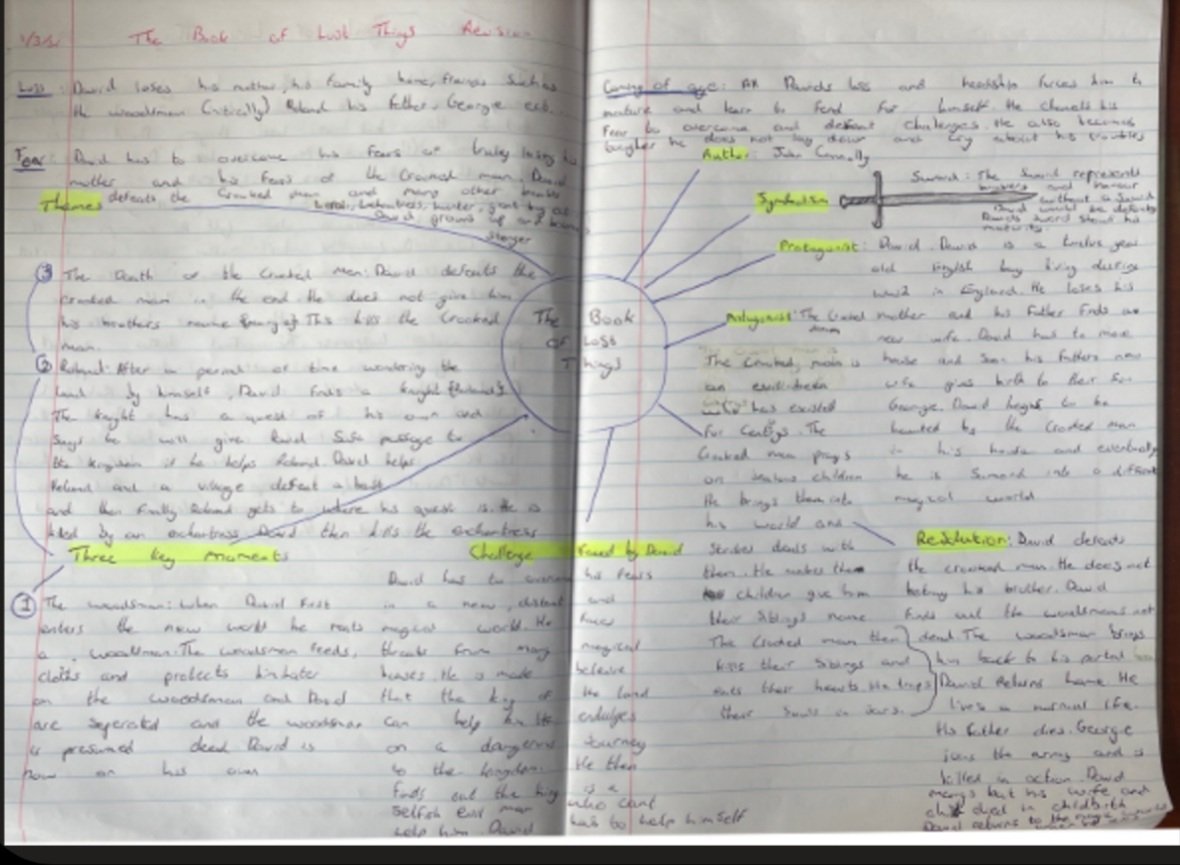 The Book of Lost Things Revision
Loss: David loses his mother, his family home, friends such as
the woodsman (initially) Roland his father, Georgie ect.
Fear: David has to overcome his fears of truly losing his
mother and his fears of the Crooked man. David
defeats the Crooked man and many other
Themes
David grows up and becomes
stronger
③ The Death of the Crooked Man: David defeats the
crooked man in the end. He does not give him
his brothers name This kills the Crooked
man.
② Roland: After a period of time wondering the
land by himself, David finds a knight (Roland).
The knight has a quest of his own and
says he will give David safe passage to
the kingdom if he helps Roland. David helps
Roland and a village defeat a beast
and then finally Roland gets to where his quest is. He is
killed by an enchantress David then kills the enchantress
Three key moments
① The woodsman: When David first
enters the new world he meets
a woodsman. The woodsman feeds,
cloths and protects him later
on the woodsman and David
are seperated and the woodsman
is presumed dead David is
now on his own
The Book
Of Lost
Things
Challenge faced by David
David has to overcome his fears
in a new, distant and
magical world. He faces
threats from many magical
He is made believe
that the king of the land
can help him He
on a dangerous journey
to the kingdom. He then
finds out the king is a
selfish evil man who cant
help him. David has to help himself
Coming of age: All Davids loss and hardship forces him to
mature and learn to fend for himself. He channels his
fear to overcome and defeat challenges. He also becomes
tougher he does not lay down and cry about his troubles
Author: John Connolly
Symbolism
Sword: The Sword represents
bravery and honour
without a Sword
David would be defeated
Davids sword shows his
maturity
Protagonist: David. David is a twelve year
old English boy living during
WW2 in England. He loses his
mother and his Father finds a
new wife. David has to move
house and soon his fathers new
wife gives birth to their son
Georgie. David begins to be
haunted by the Crooked man
in his house and eventually
he is into a different
magical world
Antagonist: The Crooked man
The Crooked man is
an evil
who has existed
for The
Crooked man preys
on jealous children
He brings them into
his world and
strikes deals with
them. He makes the
children give him
their siblings name
The Crooked man then
kills their siblings and
eats their hearts. He traps
their souls in jars.
Resolution: David defeats
the crooked man. He does not
betray his brother. David
finds out the woodsman is not
dead. The woodsman brings
him back to his portal
David Returns home. He
lives a normal life.
His father dies. Georgie
joins the army and is
killed in action. David
marrys but his wife and
child died in childbirth
David returns to the magic world